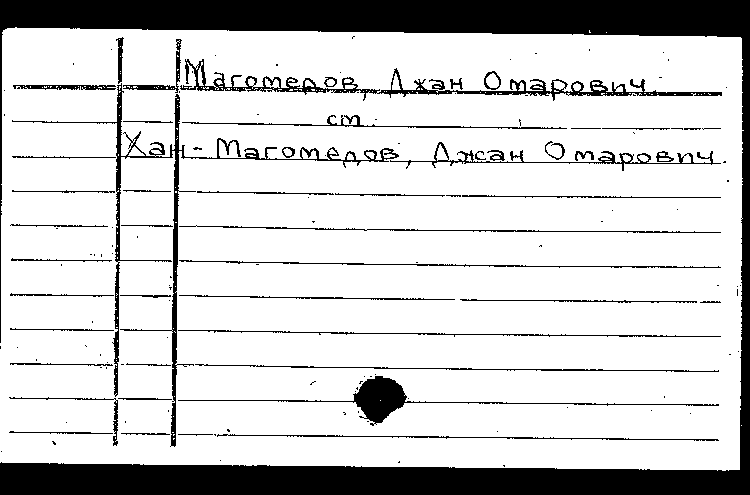 Магомедов, Джан Омарович.
ст.
Хан-Магомедов, Джан Омарович.